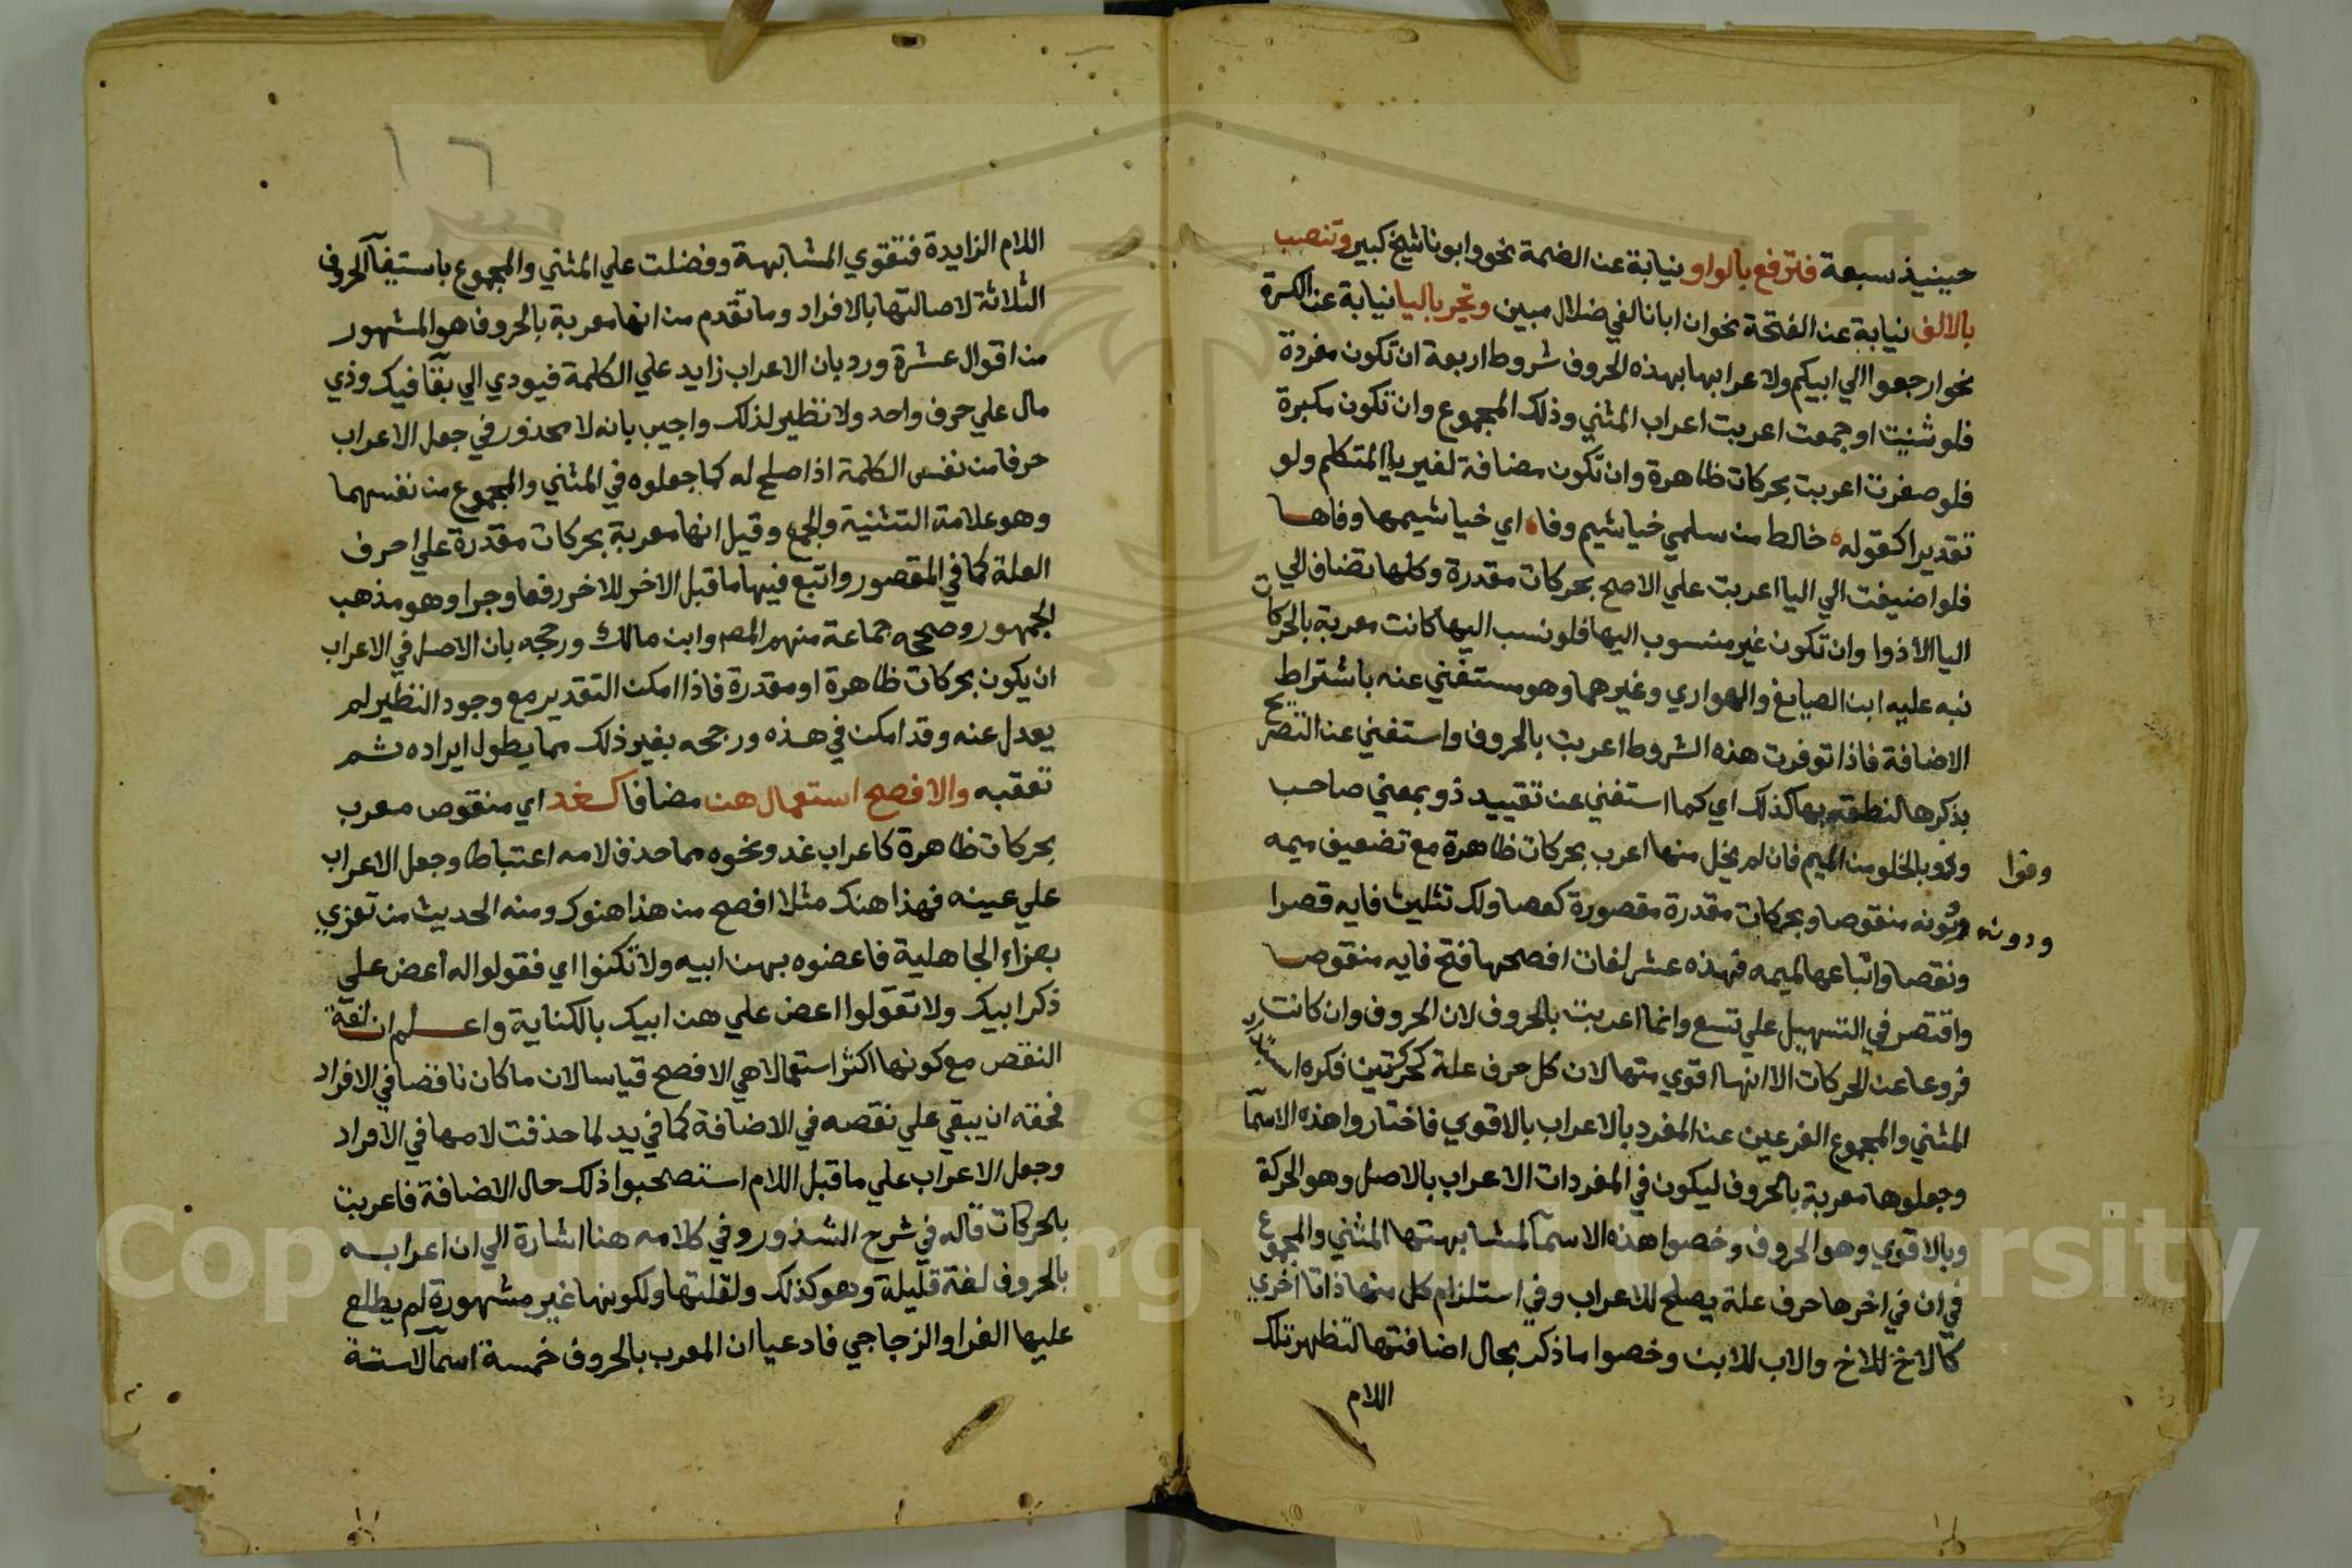 حينيذ سبعة فترفع بالواو نيابة عن الضمة نحو وابونا شيخ كبير وتنصب
بالالف نيابة عن الفتحة نحو ان ابانا لفي ضلال مبين وتجر باليا نيابة عن الكسرة
نحو ارجعوا الي ابيكم ولاعرابها بهذه الحروف شروط اربعة ان تكون مفردة
فلو ثنيت او جمعت اعربت اعراب المثني وذلك المجموع وان تكون مكبرة
فلو صغرت اعربت بحركات ظاهرة وان تكون مضافة لغير يا المتكلم ولو
تقديرا كقوله خالط من سلمي خياشيم وفا اي خياشيمها وفاها
فلو اضيفت الي اليا اعربت علي الاصح بحركات مقدرة وكلها تضاف الي
اليا الا ذوا وان تكون غير منسوب اليها فلو نسب اليها كانت معربة بالحركات
نبه عليه ابن الصايغ والهواري وغيرهما وهو مستغني عنه باشتراط
الاضافة فاذا توفرت هذه الشروط اعربت بالحروف واستغني عن التصريح
بذكرها لنطقه بها كذلك اي كما استغني عن تقييد ذو بمعني صاحب
وفو بالخلو من الميم فان لم يخل منها اعرب بحركات ظاهرة مع تضعيف ميمه
وفوا
ودونه منقوصا وبحركات مقدرة مقصورة كعصا ولك تثليث فايه قصرا
ودونه
ونقصا واتباعها لميمه فهذه عشر لغات افصحها فتح فايه منقوصا
واقتصر في التسهيل علي تسع وانما اعربت بالحروف لان الحروف وان كانت
فروعا عن الحركات الا انها اقوي منها لان كل حرف علة كحركتين فكرهوا استبداد
المثني والمجموع الفرعين عن المفرد بالاعراب بالاقوي فاختاروا هذه الاسمآ
وجعلوها معربة بالحروف ليكون في المفردات الاعراب بالاصل وهو الحركة
وبالاقوي وهو الحروف وخصوا هذه الاسمآ لمشابهتها المثني والمجموع
في ان في اخرها حرف علة يصلح للاعراب وفي استلزام كل منها ذاتا اخري
كالاخ للاخ والاب للابن وخصوا ما ذكر بحال اضافتها لتظهر تلك
اللام
١٦
اللام الزايدة فتقوي المشابهة وفضلت علي المثني والمجموع باستيفآ الحروف
الثلاثة لاصالتها بالافراد وما تقدم من انها معربة بالحروف هو المشهور
من اقوال عشرة ورد بان الاعراب زايد علي الكلمة فيودي الي بقآ فيك وذي
مال علي حرف واحد ولا نظير لذلك واجيب بانه لا محذور في جعل الاعراب
حرفا من نفس الكلمة اذا صلح له كما جعلوه في المثني والمجموع من نفسهما
وهو علامة التثنية والجمع وقيل انها معربة بحركات مقدرة علي احرف
العلة كما في المقصور واتبع فيها ما قبل الاخر للاخر رفعا وجرا وهو مذهب
الجمهور وصححه جماعة منهم المص وابن مالك ورجحه بان الاصل في الاعراب
ان يكون بحركات ظاهرة او مقدرة فاذا امكن التقدير مع وجود النظير لم
يعدل عنه وقد امكن في هذه ورجحه بغير ذلك مما يطول ايراده ثم
تعقبه والافصح استعمال هن مضافا كغد اي منقوص معرب
بحركات ظاهرة كاعراب غد ونحوه مما حذف لامه اعتباطا وجعل الاعراب
علي عينه فهذا هنك مثلا افصح من هذا هنوك ومنه الحديث من تعزي
بعزاء الجاهلية فاعضوه بهن ابيه ولا تكنوا اي فقولوا له اعض علي
ذكر ابيك ولا تقولوا اعض علي هن ابيك بالكناية واعلم ان لغة
النقص مع كونها اكثر استعمالا هي الافصح قياسا لان ما كان ناقصا في الافراد
فحقه ان يبقي علي نقصه في الاضافة كما في يد لما حذفت لامها في الافراد
وجعل الاعراب علي ما قبل اللام استصحبوا ذلك حال الاضافة فاعربت
بالحركات قاله في شرح الشذور وفي كلامه هنا اشارة الي ان اعرابه
بالحروف لغة قليلة وهو كذلك ولقلتها ولكونها غير مشهورة لم يطلع
عليها الفرا والزجاجي فادعيا ان المعرب بالحروف خمسة اسمآ لا ستة
Copyright © King Saud University